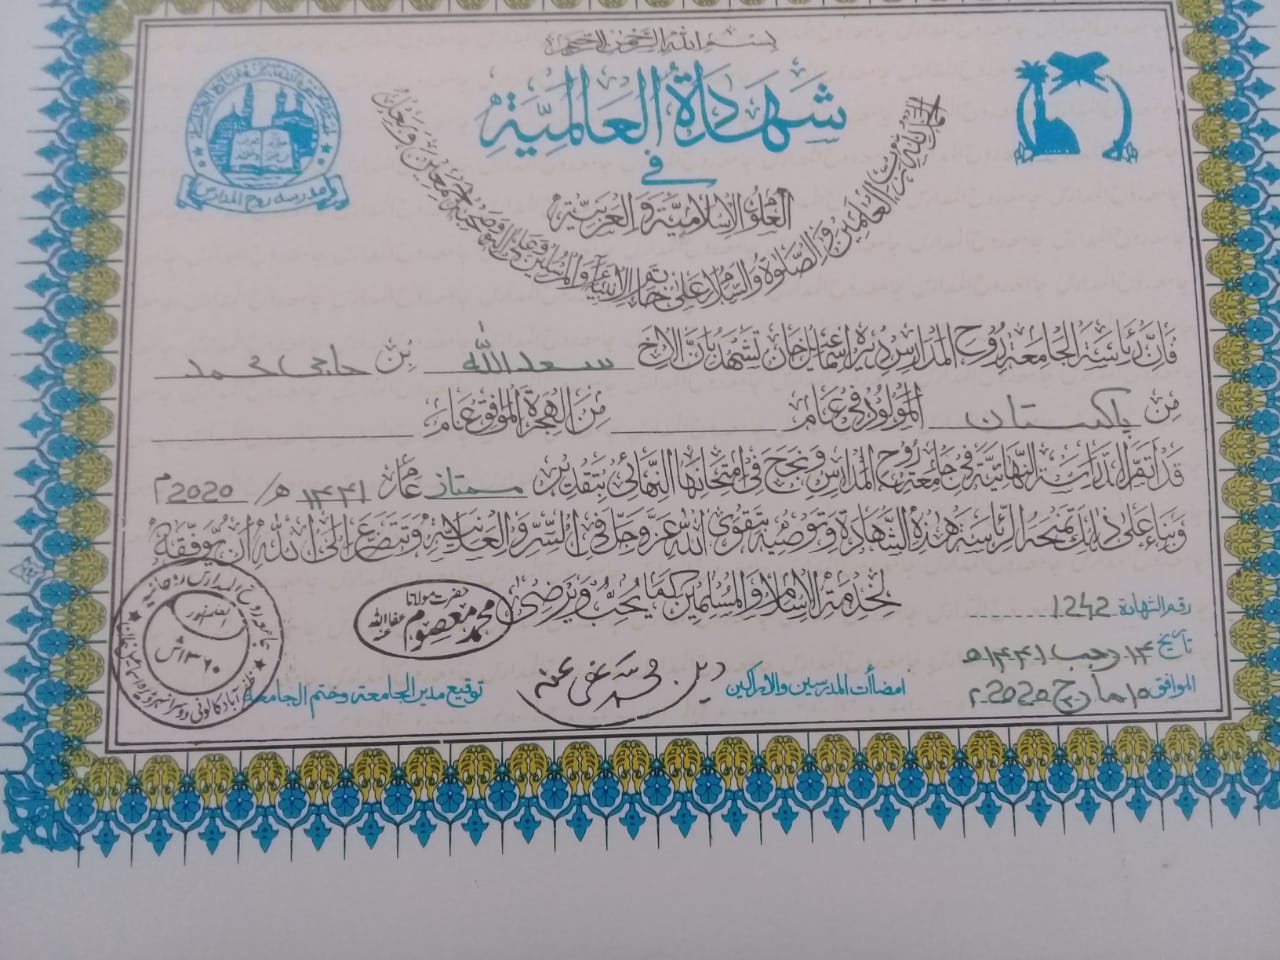 بسم الله الرحمن الرحيم
شهادة العالمية
في
العلوم الإسلامية والعربية
الحمد لله رب العالمين والصلوة والسلام على خاتم الانبياء والمرسلين وعلى آله وصحبه اجمعين وبعد
مدرسه روح المدارس
فان رئاسة الجامعة روح المدارس ديره اسماعيل خان تشهد بان الاخ سعد الله بن حاجی محمد
من پاکستان المولود في عام من الهجرة الموافق عام
قد اتم الدراسة النهائية في جامعة روح المدارس ونجح في امتحانها النهائي بتقدير ممتاز عام ١٤٤١ هـ / 2020م
وبناء على ذلك تمنحه الرئاسة هذه الشهادة وتوصيه بتقوى الله عز وجل في السر والعلانية وتتضرع الى الله ان يوفقه
لخدمة الاسلام والمسلمين كما يحب ويرضى
رقم الشهادة 1242
تاريخ ١٤ رجب ١٤٤١ھ
الموافق ١٠ مارچ 2020ء
امضاآت المدرسين والاراكين
توقيع مدير الجامعة وختم الجامعة
حضرت مولانا
محمد معصوم عفا الله